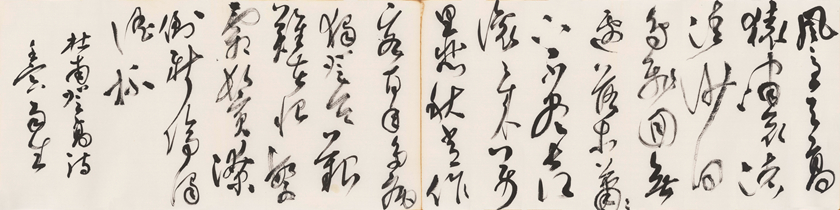 風急天高
猿嘯哀渚
清沙白
鳥飛回無
邊落木蕭〻
下不盡長江
滾〻來萬
里悲秋常作
客百年多病
獨登臺艱
難苦恨繁
霜鬢潦
倒新停濁
酒杯
杜甫登高詩